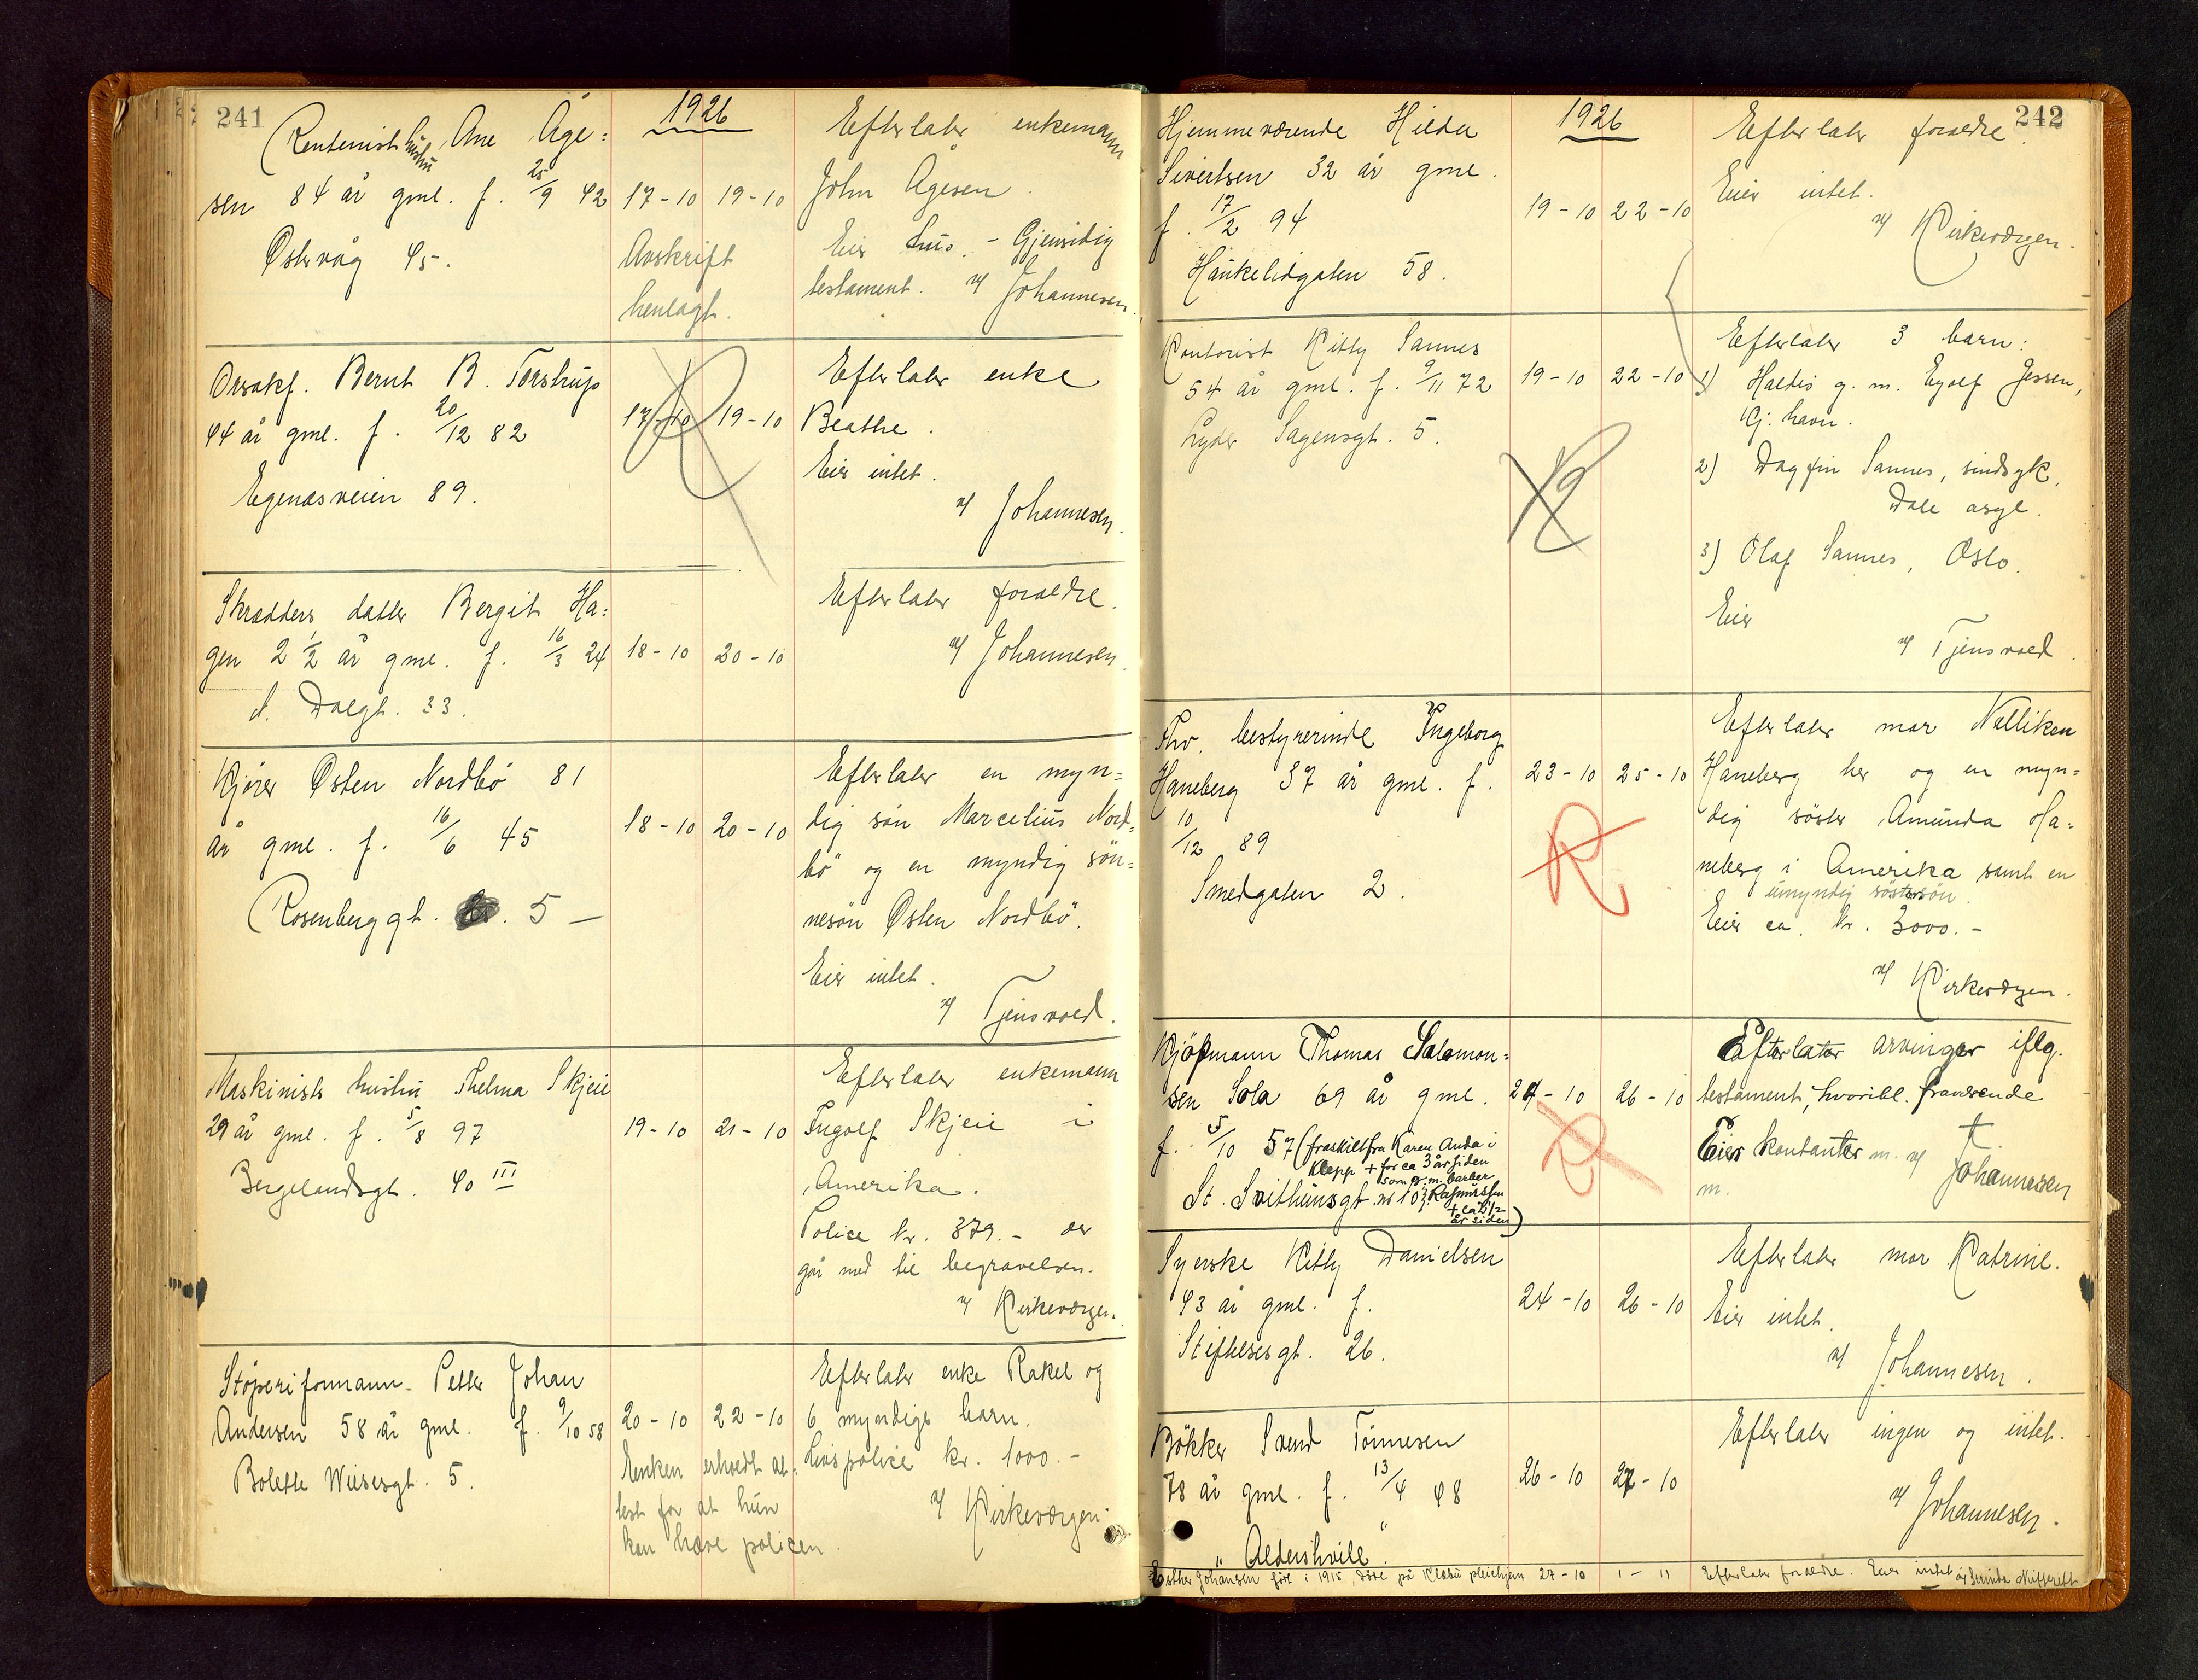 241
1926
Rentenist hustru Ane Åge=
sen 84 år gml. f. 25/9 42
Østervåg 45.
17-10 19-10
Avskrift
henlagt.
Efterlater enkemann
John Ågesen.
Eier hus. - Gjensidig
testament. v/ Johannesen.
Drosakf. Bernt B. Torstrup
44 år gml. f. 20/12 82
Egenæsveien 89.
17-10 19-10
Efterlater enke
Beathe.
Eier intet.
v/ Johannesen.
Skrædders datter Bergit Ha=
gen 2 1/2 år gml. f. 16/3 24
N. Dalgt. 33.
18-10 20-10
Efterlater forældre.
v/ Johannesen.
Kjører Østen Nordbö 81
år gml. f. 16/6 45
Rosenberggt. 5 -
18-10 20-10
Efterlater en myn=
dig sön Marcelius Nord=
bö og en myndig sön=
nesön Østen Nordbö.
Eier intet.
v/ Tjensvold.
Maskinists hustru Thelma Skjeie
29 år gml. f. 5/8 97
Bergelandsgt. 40 III
19-10 21-10
Efterlater enkemann
Ingolf Skjeie i
Amerika.
Police kr. 379.- der
går med til begravelsen.
v/ Kirkeværgen.
Støperiformann Petter Johan
Andersen 58 år gml. f. 9/10 58
Bolette Wiesesgt. 5.
20-10 22-10
Enken erholdt at=
test for at hun
kan hæve policen.
Efterlater enke Rakel og
6 myndige barn.
Livspolice kr. 1000.-
v/ Kirkeværgen.
242
1926
Hjemmeværende Hilda
Sivertsen 32 år gml.
f. 17/2 94
Haukelidgaten 58.
19-10 22-10
Efterlater forældre.
Eier intet.
v/ Kirkeværgen.
Kontorist Kitty Sannes
54 år gml. f. 9/11 72
Lyder Sagensgt. 5.
19-10 22-10
Efterlater 3 barn:
1) Haldis g. m. Eyolf Jessen,
Kj. havn.
2) Dagfin Sannes, sindsyk,
Dale asyl.
3) Olaf Sannes, Oslo.
Eier
v/ Tjensvold.
Fhv. bestyrerinde Ingeborg
Haneberg 37 år gml. f.
10/12 89
Smedgaten 2.
23-10 25-10
Efterlater mor Nelliken
Haneberg her og en myn=
dig søster Amunda Ha=
neberg i Amerika samt en
umyndig søstersøn.
Eier ca. kr. 3000.-
v/ Kirkeværgen.
Kjöpmann Thomas Salomon=
sen Sola 69 år gml.
f. 5/10 57 (fraskilt fra Karen Anda i
Klepp + for ca 3 år siden
som g. m. barber
Rasmussen
+ ca 2 1/2
år siden)
St. Svithunsgt. nr 10
24-10 26-10
Efterlater arvinger iflg.
testament, hvoribl. fraværende
Eier kontanter m. v/ Johannesen
m.
Syerske Kitty Danielsen
43 år gml. f.
Stiftelsesgt. 26.
24-10 26-10
Efterlater mor Katrine.
Eier intet.
v/ Johannesen.
Bökker Svend Tönnesen
78 år gml. f. 13/4 48
"Aldershvile".
26-10 27-10
Efterlater ingen og intet.
v/ Johannesen.
Esther Johansen född i 1915, döde på Klæbu pleiehjem 27-10 1-11 Efterlater forældre. Eier intet